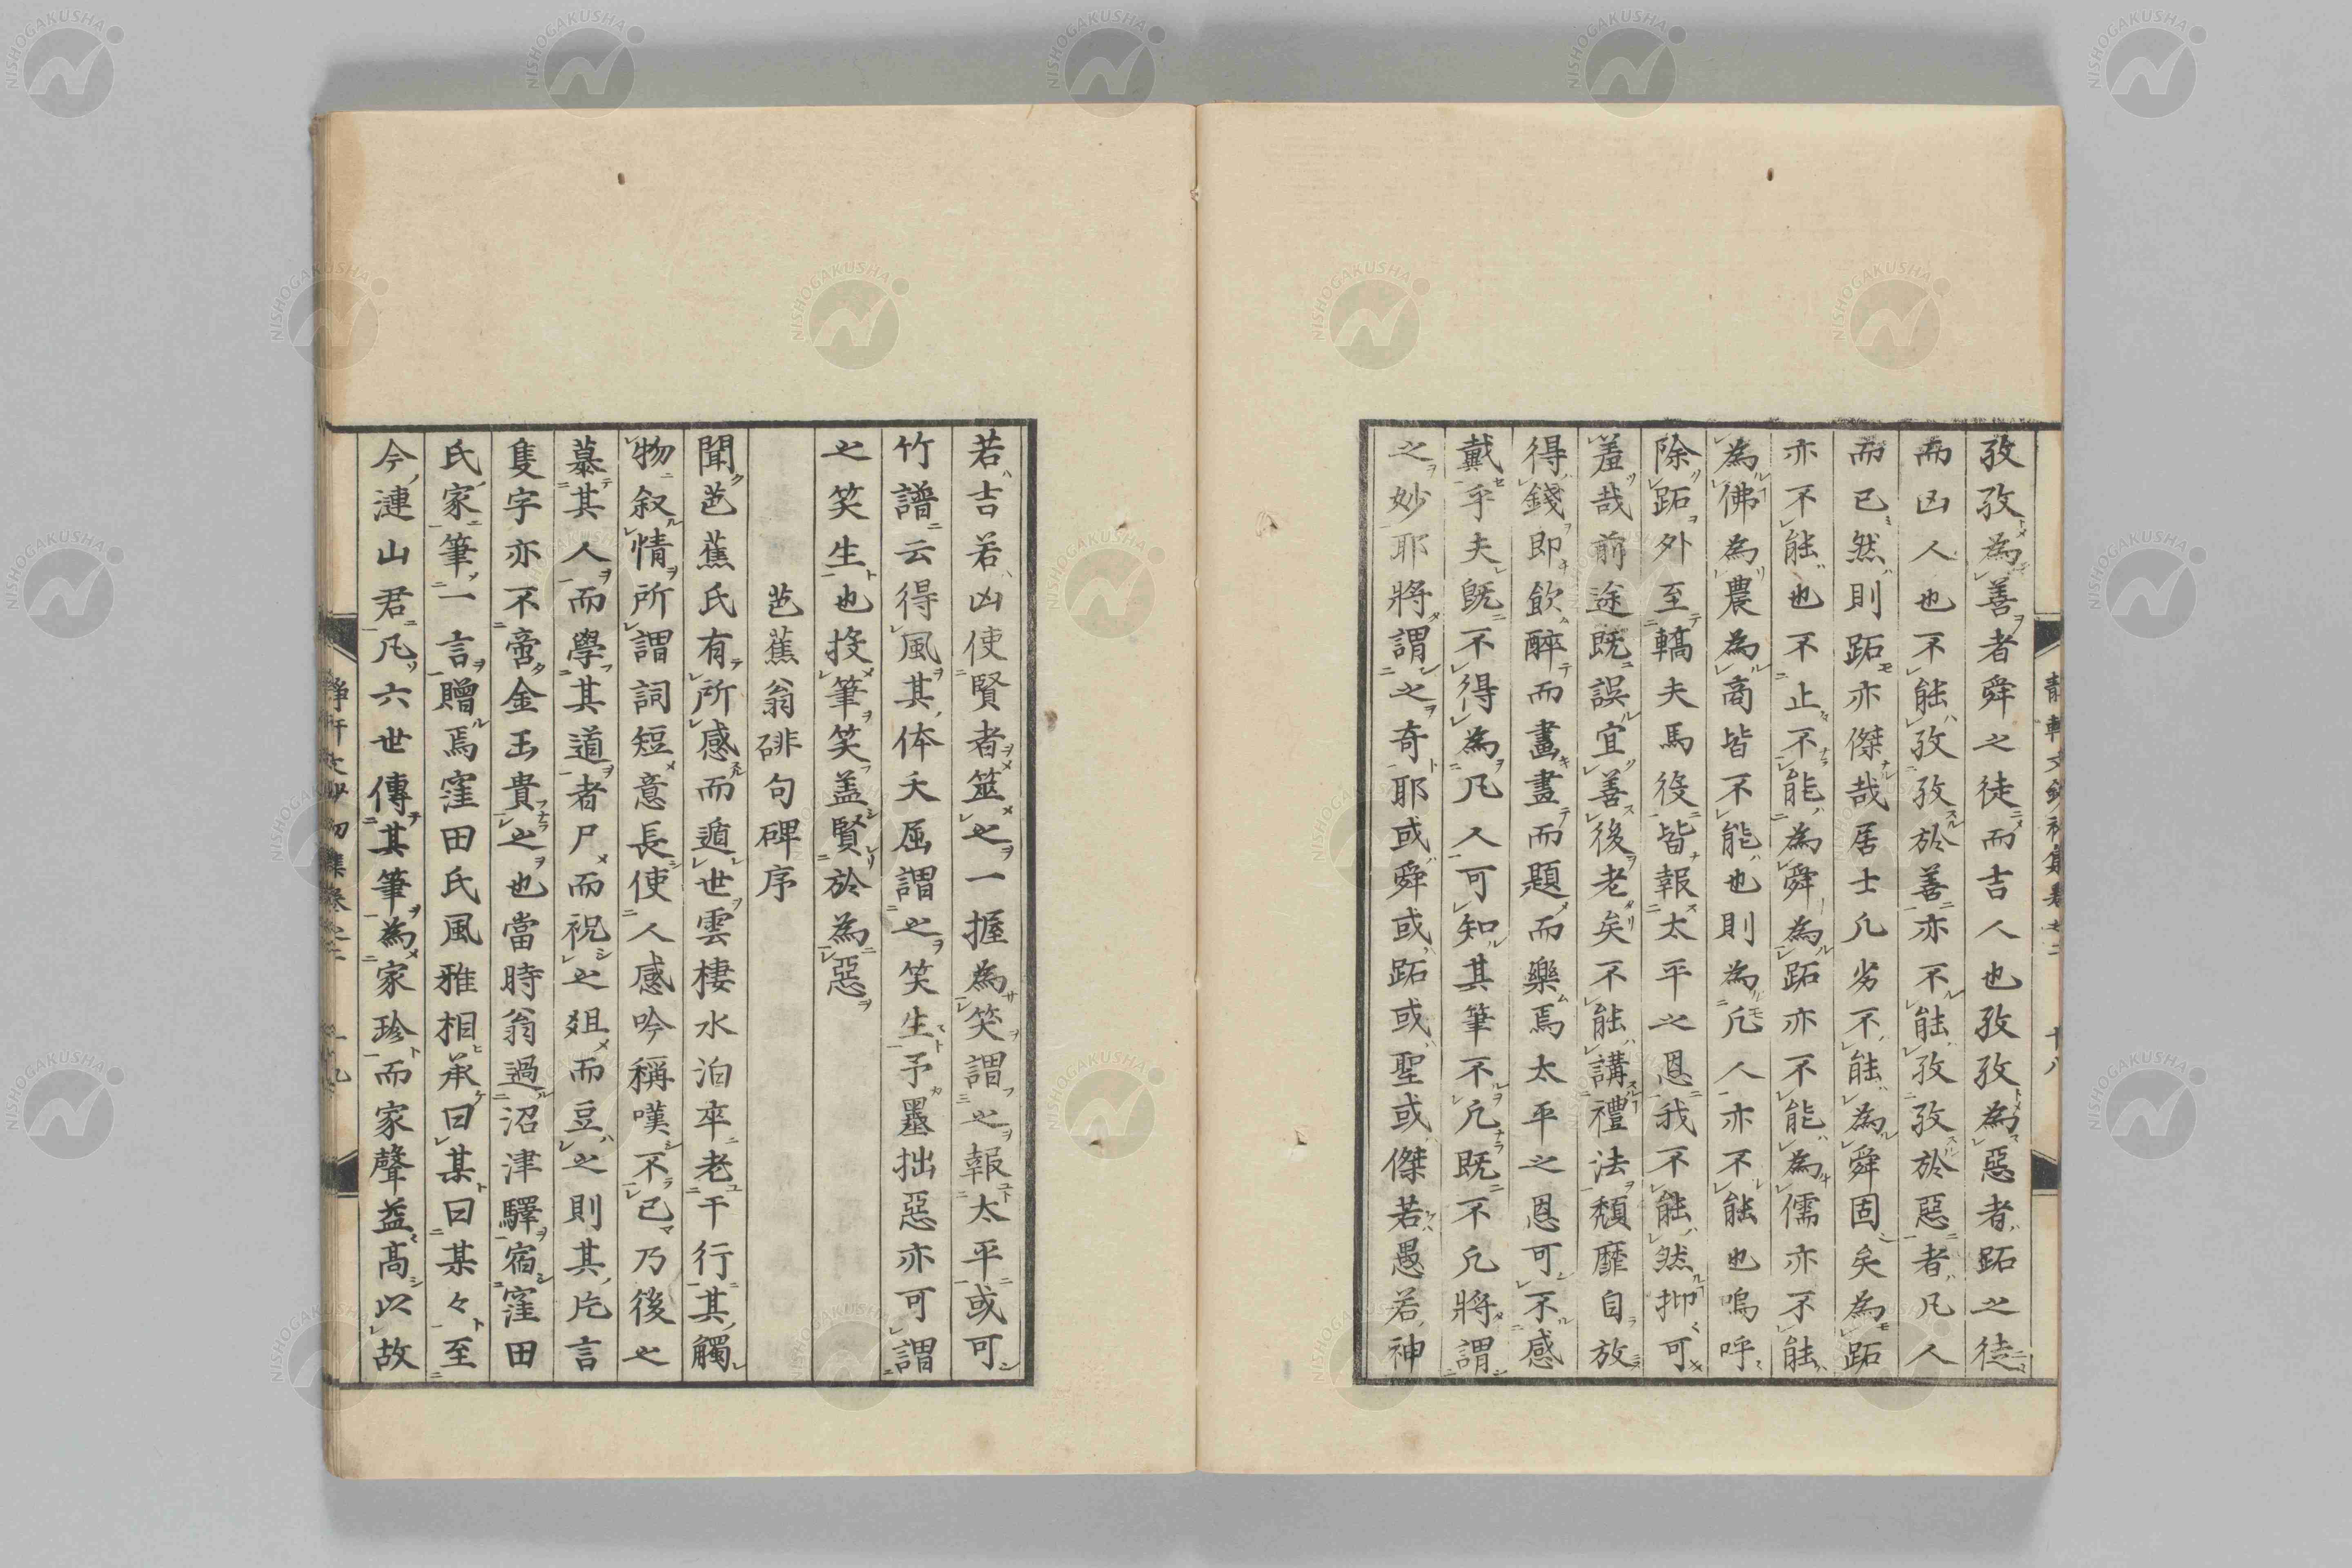 孜孜為善者舜之徒而吉人也孜孜為惡者跖之徒
而凶人也不能孜孜於善亦不能孜孜於惡者凡人
而已然則跖亦傑哉居士凡劣不能為舜固矣為跖
亦不能也不止不能為舜為跖亦不能為儒亦不能
為佛為農為商皆不能也則為凡人亦不能也嗚呼
除跖外至轎夫馬役皆報太平之恩我不能然抑可
羞哉前途既誤宜善後老矣不能講禮法頹靡自放
得錢即飲醉而畫畫而題而樂焉太平之恩可不感
戴乎夫既不得為凡人可知其筆不凡既不凡將謂
之妙耶將謂之奇耶或舜或跖或聖或傑若愚若神
若吉若凶使賢者筮之一握為笑謂之報太平或可
竹譜云得風其体夭屈謂之笑生予墨拙惡亦可謂
之笑生也投筆笑盖賢於為惡
芭蕉翁碑句碑序
聞芭蕉氏有所感而遁世雲棲水泊卒老干行其觸
物叙情所謂詞短意長使人感吟稱嘆不已乃後之
慕其人而學其道者尸而祝之爼而豆之則其片言
隻字亦不啻金玉貴之也當時翁過沼津驛宿窪田
氏家筆一言贈焉窪田氏風雅相承曰某曰某々至
今漣山君凡六世傳其筆為家珍而家聲益高以故
NISHOGAKUSHA